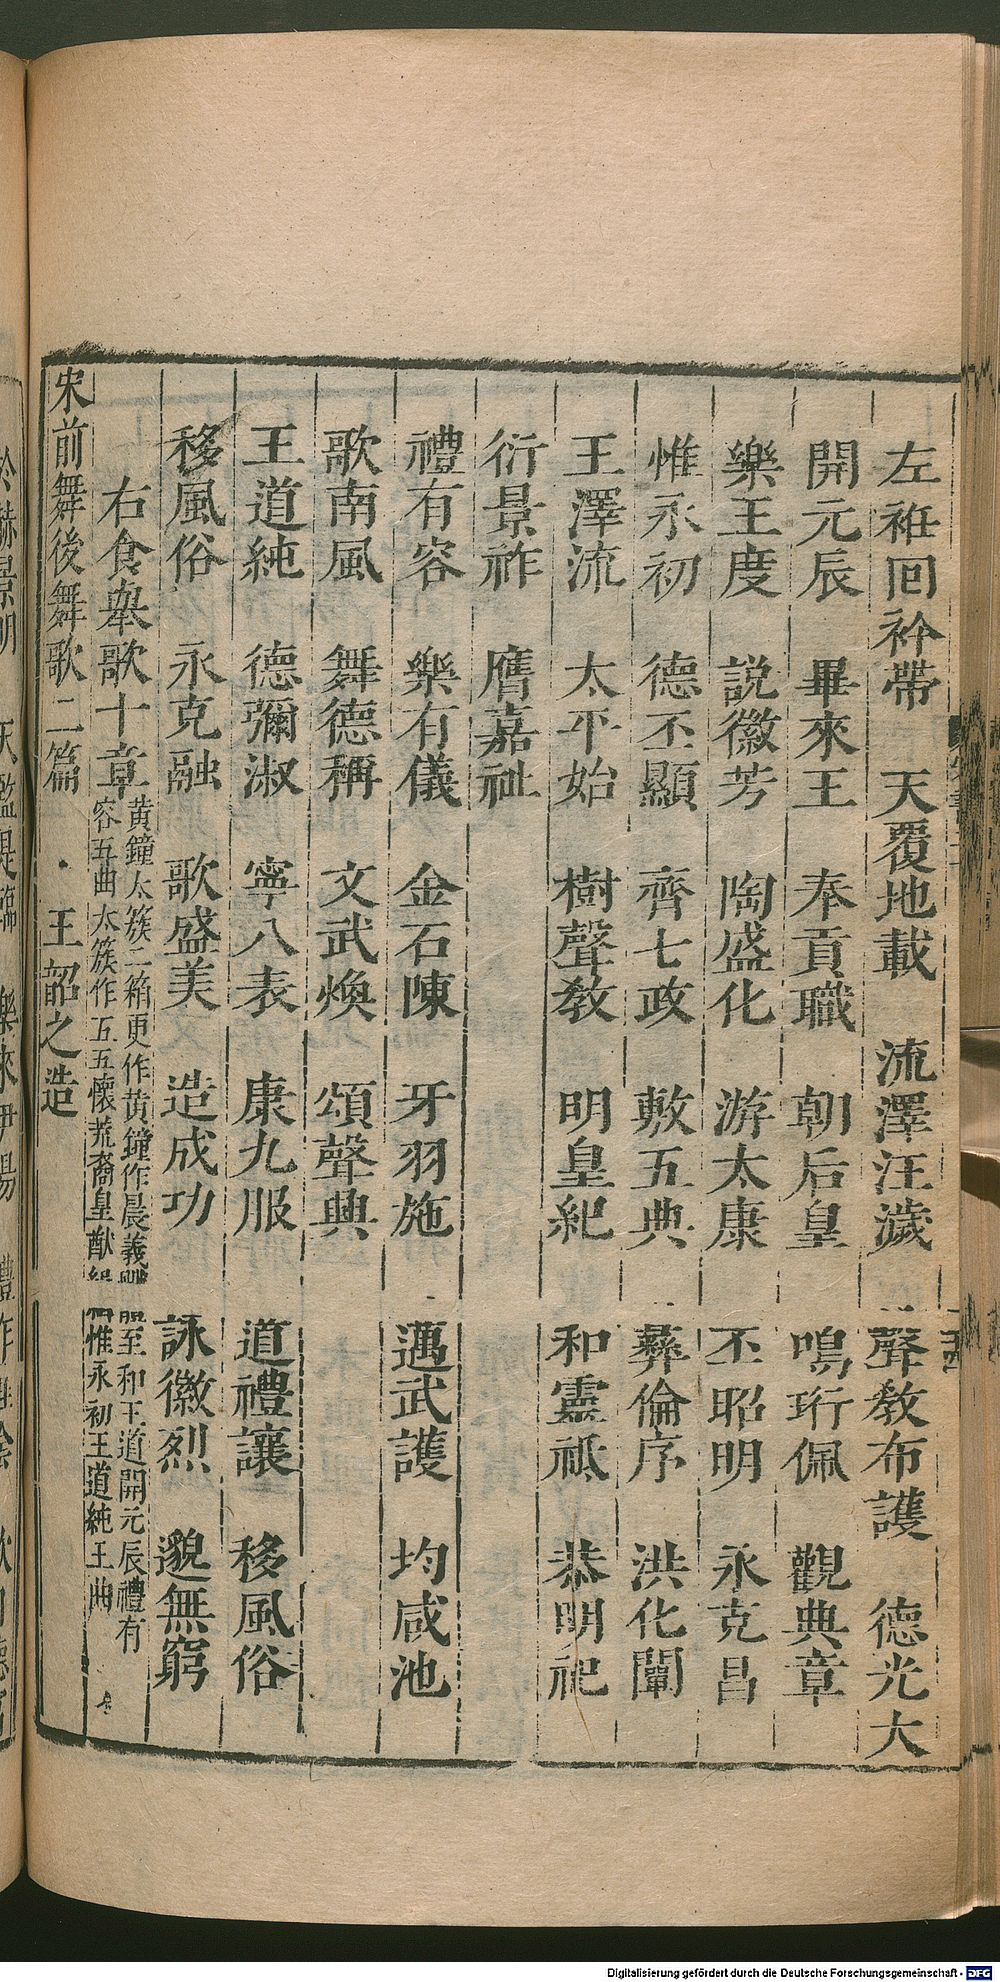 左袵回衿帶　天覆地載　流澤汪濊　聲教布護　德光大
開元辰　畢來王　奉貢職　朝后皇　鳴珩佩　觀典章
樂王度　説徽芳　陶盛化　游太康　丕昭明　永克昌
惟永初　德丕顯　齊七政　敷五典　彝倫序　洪化闡
王澤流　太平始　樹聲教　明皇紀　和靈祗　恭明祀
衍景祚　膺嘉祉
禮有容　樂有儀　金石陳　牙羽施　邁武護　均咸池
歌南風　舞德稱　文武煥　頌聲興
王道純　德彌淑　寧八表　康九服　道禮讓　移風俗
移風俗　永克融　歌盛美　造成功　詠徽烈　邈無窮
右食舉歌十章
黄鐘太簇二箱更作黄鐘作晨義 至和王道開元辰禮有
容五曲太簇作五五懷荒裔皇猷 惟永初王道純王曲
宋前舞後舞歌二篇　王韶之造
於赫景明　天監是臨　樂來伊陽　禮作
Digitalisierung gefördert durch die Deutsche Forschungsgemeinschaft - DFG